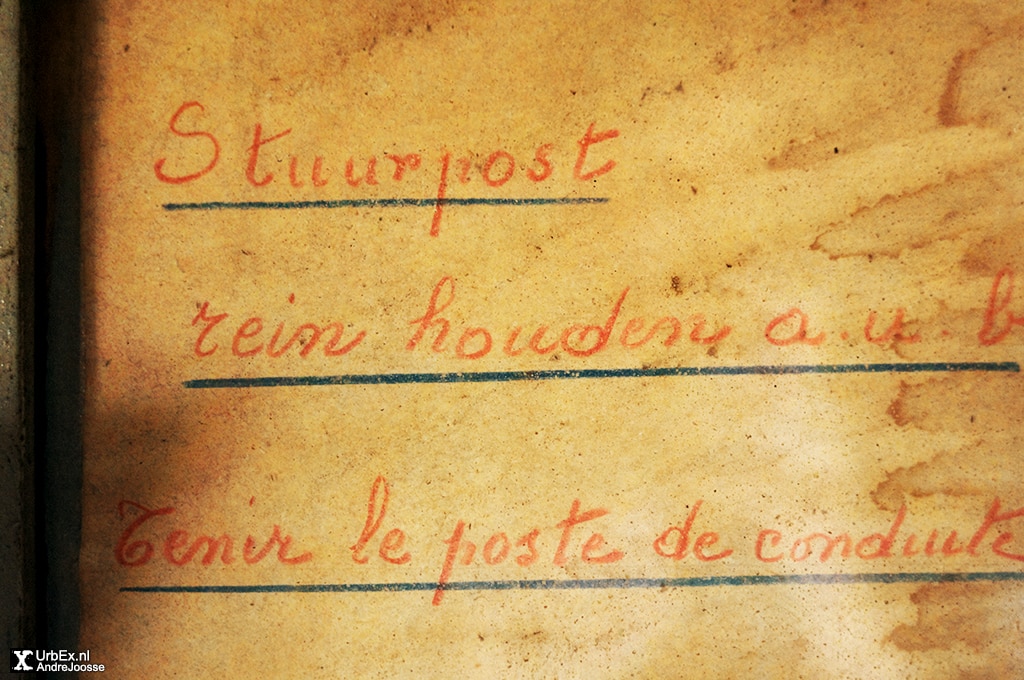 Stuurpost
rein houden a.u.b
Tenir le poste de conduite
UrbEx.nl
AndreJoosse